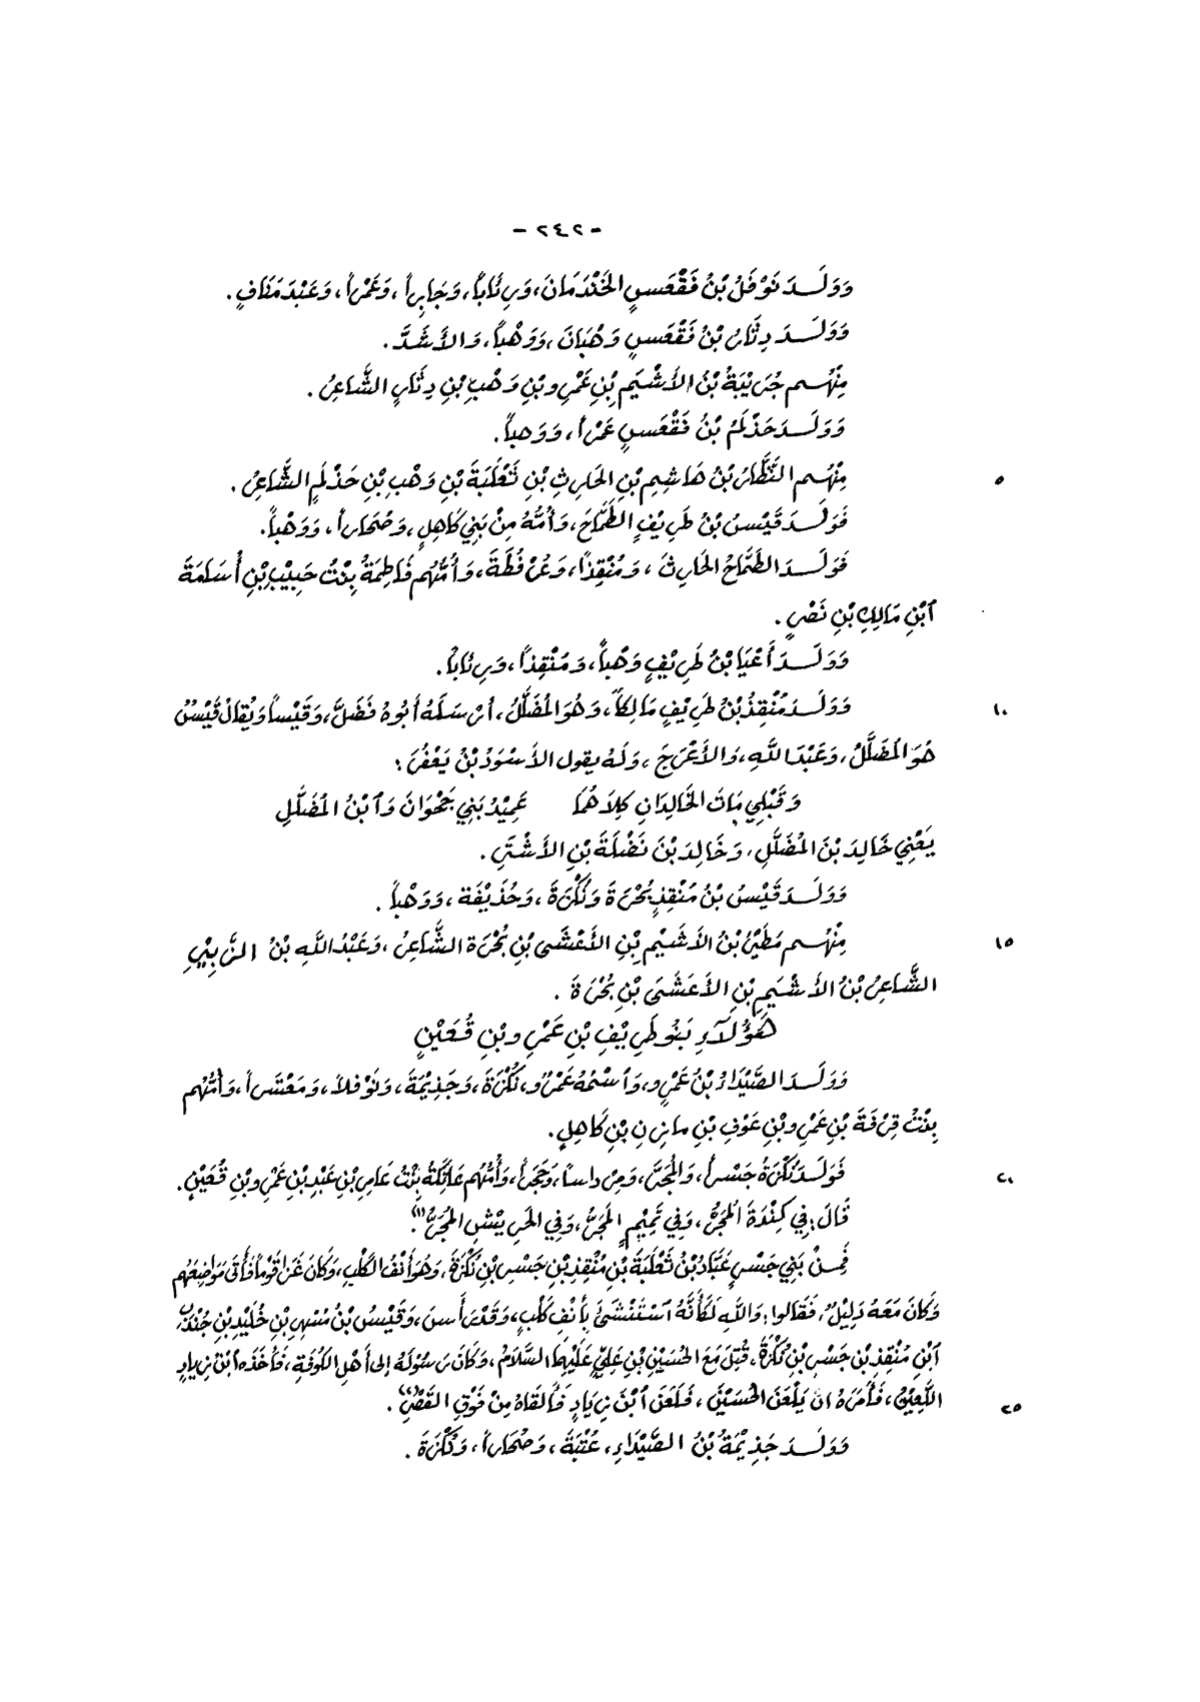 - ٢٤٢ -
وَوَلَـدَ نَوْفَلُ بْنُ فَقْعَسٍ الخَنْدَمَانَ، وَرِئَاباً، وَجَابِراً، وَعَمْراً، وَعَبْدَ مَنَافٍ.
وَوَلَـدَ دِثَارُ بْنُ فَقْعَسٍ وَهْبَانَ، وَوَهْباً، وَالأَشَدَّ.
مِنْهُـم جُرَيْبَةُ بْنُ الأَشْيَمِ بْنِ عَمْرِو بْنِ وَهْبِ بْنِ دِثَارٍ الشَّاعِرُ.
وَوَلَـدَ حَذْلَمُ بْنُ فَقْعَسٍ عَمْراً، وَوَهباً.
٥ مِنْهُـم النَّظَّارُ بْنُ هَاشِمِ بْنِ الحَارِثِ بْنِ ثَعْلَبَةَ بْنِ وَهْبِ بْنِ حَذْلَمٍ الشَّاعِرُ.
فَوَلَـدَ قَيْسُ بْنُ طَرِيْفٍ الطَّمَّاحَ، وَأُمُّهُ مِنْ بَنِي كَاهِلٍ، وَصُحَاراً، وَوَهْباً.
فَوَلَـدَ الطَّمَّاحُ الحَارِثَ، وَمُنْقِذاً، وَعُرْفُطَةَ، وَأُمُّهُم فَاطِمَةُ بِنْتُ حَبِيْبِ بْنِ أُسَامَةَ
ٱبْنِ مَالِكِ بْنِ نَصْرٍ.
وَوَلَـدَ أَعْيَا بْنُ طَرِيْفٍ وَهْباً، وَمُنْقِذاً، وَرِئَاباً.
١٠ وَوَلَـدَ مُنْقِذُ بْنُ طَرِيْفٍ مَالِكاً، وَهُوَ المُضَلَّلُ، أرْسَلَهُ أَبُوهُ فَضَلَّ، وَقَيْساً وَيُقالُ قَيْسٌ
هُوَ المُضَلَّلُ، وَعَبْدَ اللَّهِ، وَالأَعْرَجَ، وَلَهُ يقول الأَسْوَدُ بْنُ يَعْفُرَ:
وَقَبْلِي مَاتَ الخَالِدَانِ كِلَاهُمَا عَمِيْدُ بَنِي جَحْوَانَ وَٱبْنُ المُضَلَّلِ
يَعْنِي خَالِدَ بْنَ المُضَلَّلِ، وَخَالِدَ بْنَ نَضْلَةَ بْنِ الأَشْتَرِ.
وَوَلَـدَ قَيْسُ بْنُ مُنْقِذٍ بُحْرَةَ وَنُكْرَةَ، وَحُذَيْفَة، وَوَهْباً.
١٥ مِنْهُـم مُطَيْرُ بْنُ الأَشْيَمِ بْنِ الأَعْشَى بْنِ بُحْرَة الشَّاعِرُ، وَعَبْدُ اللَّهِ بْنُ الزَّبِيْرِ
الشَّاعِرُ بْنُ الأَشْيَمِ بْنِ الأَعْشَى بْنِ بُحْرَةَ.
هَؤُلَاءِ بَنُو طَرِيْفِ بْنِ عَمْرِو بْنِ قُعَيْنٍ
وَوَلَـدَ الصَّيْدَاءُ بْنُ عَمْرٍو، وَٱسْمُهُ عَمْرٌو، نُكْرَةَ، وَجَذِيْمَةَ، وَنَوْفَلاً، وَمُعَتَّراً، وَأُمُّهُم
بِنْتُ قِرْفَةَ بْنِ عَمْرِو بْنِ عَوْفِ بْنِ مازِنِ بْنِ كَاهِلٍ.
٢٠ فَوَلَـدَ نُكْرَةُ جَسْراً، وَالمُجَرَّ، وَمِرْداساً، وَحَجَراً، وَأُمُّهُم عَاتِكَةُ بِنْتُ عَامِرِ بْنِ عَبْدِ بْنِ عَمْرِو بْنِ قُعَيْنٍ.
قَالَ: فِي كِنْدَةَ المُجَرُّ، وَفِي تَمِيْمٍ المُجَرُّ، وَفِي الحَرِيْشِ المُجَرُّ(١).
فَمِـنْ بَنِي جَسْرٍ عَبَّادُ بْنُ ثَعْلَبَةَ بْنِ مُنْقِذِ بْنِ جَسْرِ بْنِ نُكْرَةَ، وَهُوَ أَنْفُ الكَلْبِ، وَكَانَ غَزَا قَوْماً فَأَتَى مَوَاضِعَهُم
وَكَانَ مَعَهُ دَلِيْلٌ، فَقَالوا: وَاللَّهِ لَكَأَنَّهُ ٱسْتَنْشَى بِأَنْفِ كَلْبٍ، وَقَدْ رَأَسَ، وَقَيْسُ بْنُ مُسْهِرِ بْنِ خُلَيْدِ بْنِ جُنْدَبِ
ٱبْنِ مُنْقِذِ بْنِ جَسْرِ بْنِ نُكْرَةَ، قُتِلَ مَعَ الحُسَيْنِ بْنِ عَلِيٍّ عَلَيْهِمَا السَّلَامُ، وَكَانَ رَسُوْلَهُ إلى أَهْلِ الكُوفَةِ، فَأَخَذَه ٱبْنُ زِيادٍ
٢٥ اللَّعِيْنُ، فَأَمَرَهُ انْ يَلْعَنَ الحُسَيْنَ، فَلَعَنَ ٱبْنَ زِيَادٍ فَأَلقَاهُ مِنْ فَوْقِ القَصْرِ(٢).
وَوَلَـدَ جَذِيْمَةُ بْنُ الصَّيْدَاءِ، عُتْبَةَ، وَصُحَاراً، وَنُكْرَةَ.